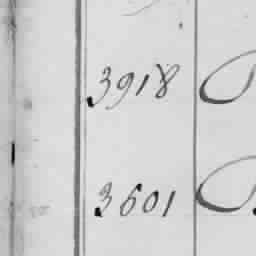 3918
3601